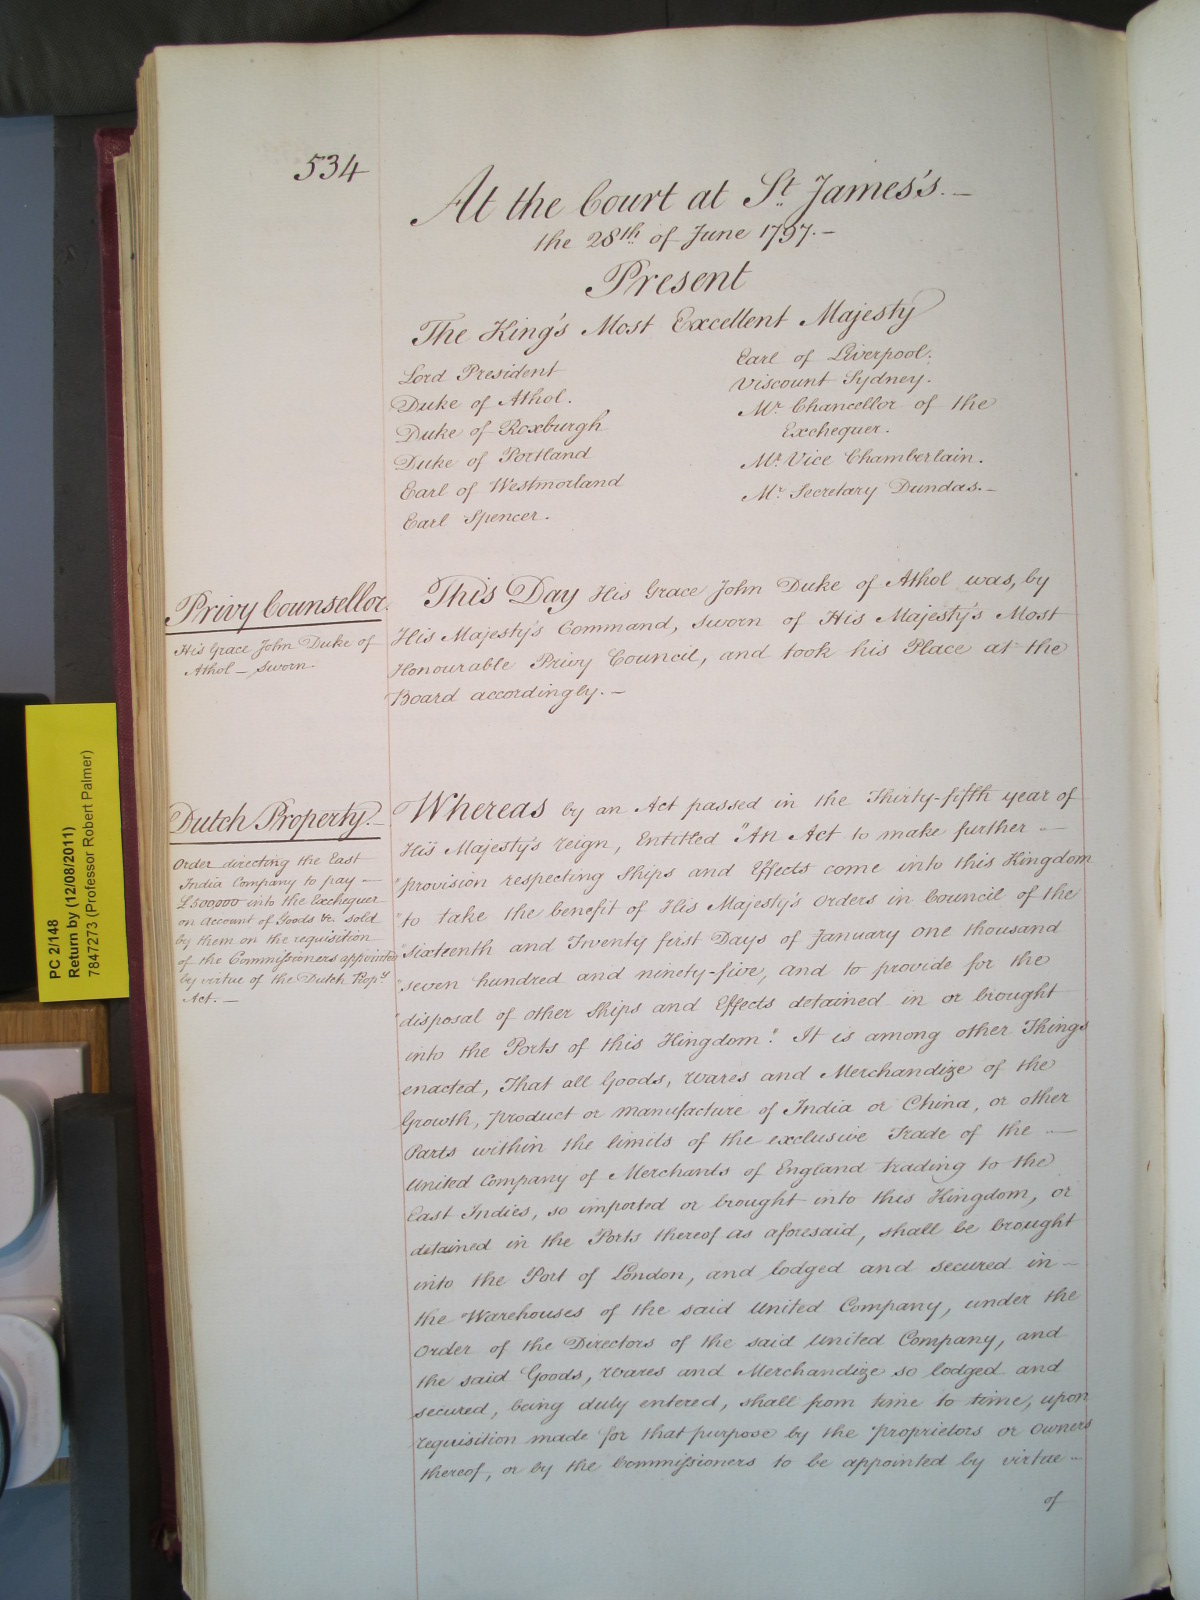 534
At the Court at St. James's.—
the 28th of June 1797.—
Present
The King's Most Excellent Majesty
Lord President
Duke of Athol.
Duke of Roxburgh
Duke of Portland
Earl of Westmorland
Earl Spencer.
Earl of Liverpool.
Viscount Sydney.
Mr. Chancellor of the
Exchequer.
Mr. Vice Chamberlain.
Mr. Secretary Dundas.—
Privy Counsellor.
His Grace John Duke of
Athol — Sworn.
This Day His Grace John Duke of Athol was, by
His Majesty's Command, sworn of His Majesty's Most
Honourable Privy Council, and took his Place at the
Board accordingly.—
Dutch Property.—
Order directing the East
India Company to pay —
£500000 into the Exchequer
on Account of Goods &c. sold
by them on the requisition
of the Commissioners appointed
by virtue of the Dutch Propy.
Act.—
Whereas by an Act passed in the Thirty-fifth year of
His Majesty's reign, Entitled "An Act to make further —
"provision respecting Ships and Effects come into this Kingdom
"to take the benefit of His Majesty's Orders in Council of the
"Sixteenth and Twenty first Days of January one thousand
"seven hundred and ninety-five, and to provide for the
"disposal of other Ships and Effects detained in or brought
into the Ports of this Kingdom". It is among other Things
enacted, That all Goods, Wares and Merchandize of the
Growth, product or manufacture of India or China, or other
Parts within the limits of the exclusive Trade of the —
United Company of Merchants of England trading to the
East Indies, so imported or brought into this Kingdom, or
detained in the Ports thereof as aforesaid, shall be brought
into the Port of London, and lodged and secured in —
the Warehouses of the said United Company, under the
Order of the Directors of the said United Company, and
the said Goods, Wares and Merchandize so lodged and
secured, being duly entered, shall from time to time, upon
requisition made for that purpose by the Proprietors or Owners
thereof, or by the Commissioners to be appointed by virtue —
of
PC 2/148
Return by (12/08/2011)
7847273 (Professor Robert Palmer)